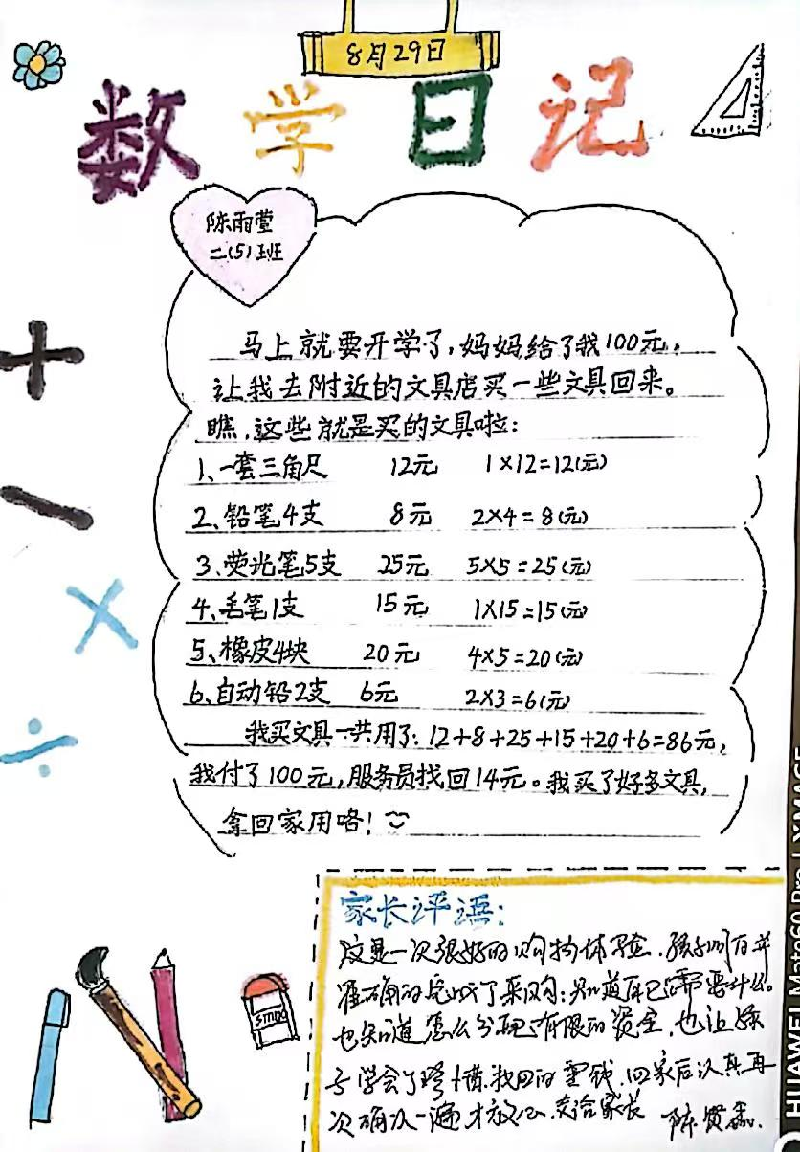 8月29日
数学日记
陈雨萱
二(5)班
马上就要开学了,妈妈给了我100元,
让我去附近的文具店买一些文具回来。
瞧,这些就是买的文具啦:
1、一套三角尺 12元 1×12=12(元)
2、铅笔4支 8元 2×4=8(元)
3、荧光笔5支 25元 5×5=25(元)
4、毛笔1支 15元 1×15=15(元)
5、橡皮4块 20元 4×5=20(元)
6、自动铅2支 6元 2×3=6(元)
我买文具一共用了:12+8+25+15+20+6=86元,
我付了100元,服务员找回14元。我买了好多文具,
拿回家用咯!
家长评语:
这是一次很好的购物体验,孩子们有并
准确的完成了采购:知道自己需要什么。
也知道怎么分配有限的资金,也让孩
子学会了找回的零钱,回家后认真再
次确认一遍才放心交给家长
HUAWEI Mate60 Pro | XMAGE